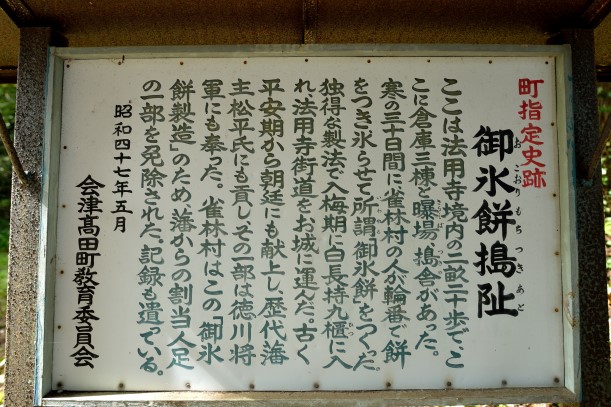 町指定史跡
御氷餅搗阯
おこおりもちつきあと
ここは法用寺境内の二畝二十歩で、こ
こに倉庫三棟と曝場、搗舎があった。
寒の三十日間に雀林村の人が輪番で餅
をつき氷らせて所謂「御氷餅」をつくった。
独得な製法で入梅期に白長持九櫃に入
れ法用寺街道をお城に運んだ。古く
平安期から朝廷にも献上し歴代藩
主松平氏にも貢しその一部は徳川将
軍にも奉った。雀林村はこの「御氷
餅製造」のため藩からの割当人足
の一部を免除された。記録も遺っている。
昭和四十七年五月
会津高田町教育委員会